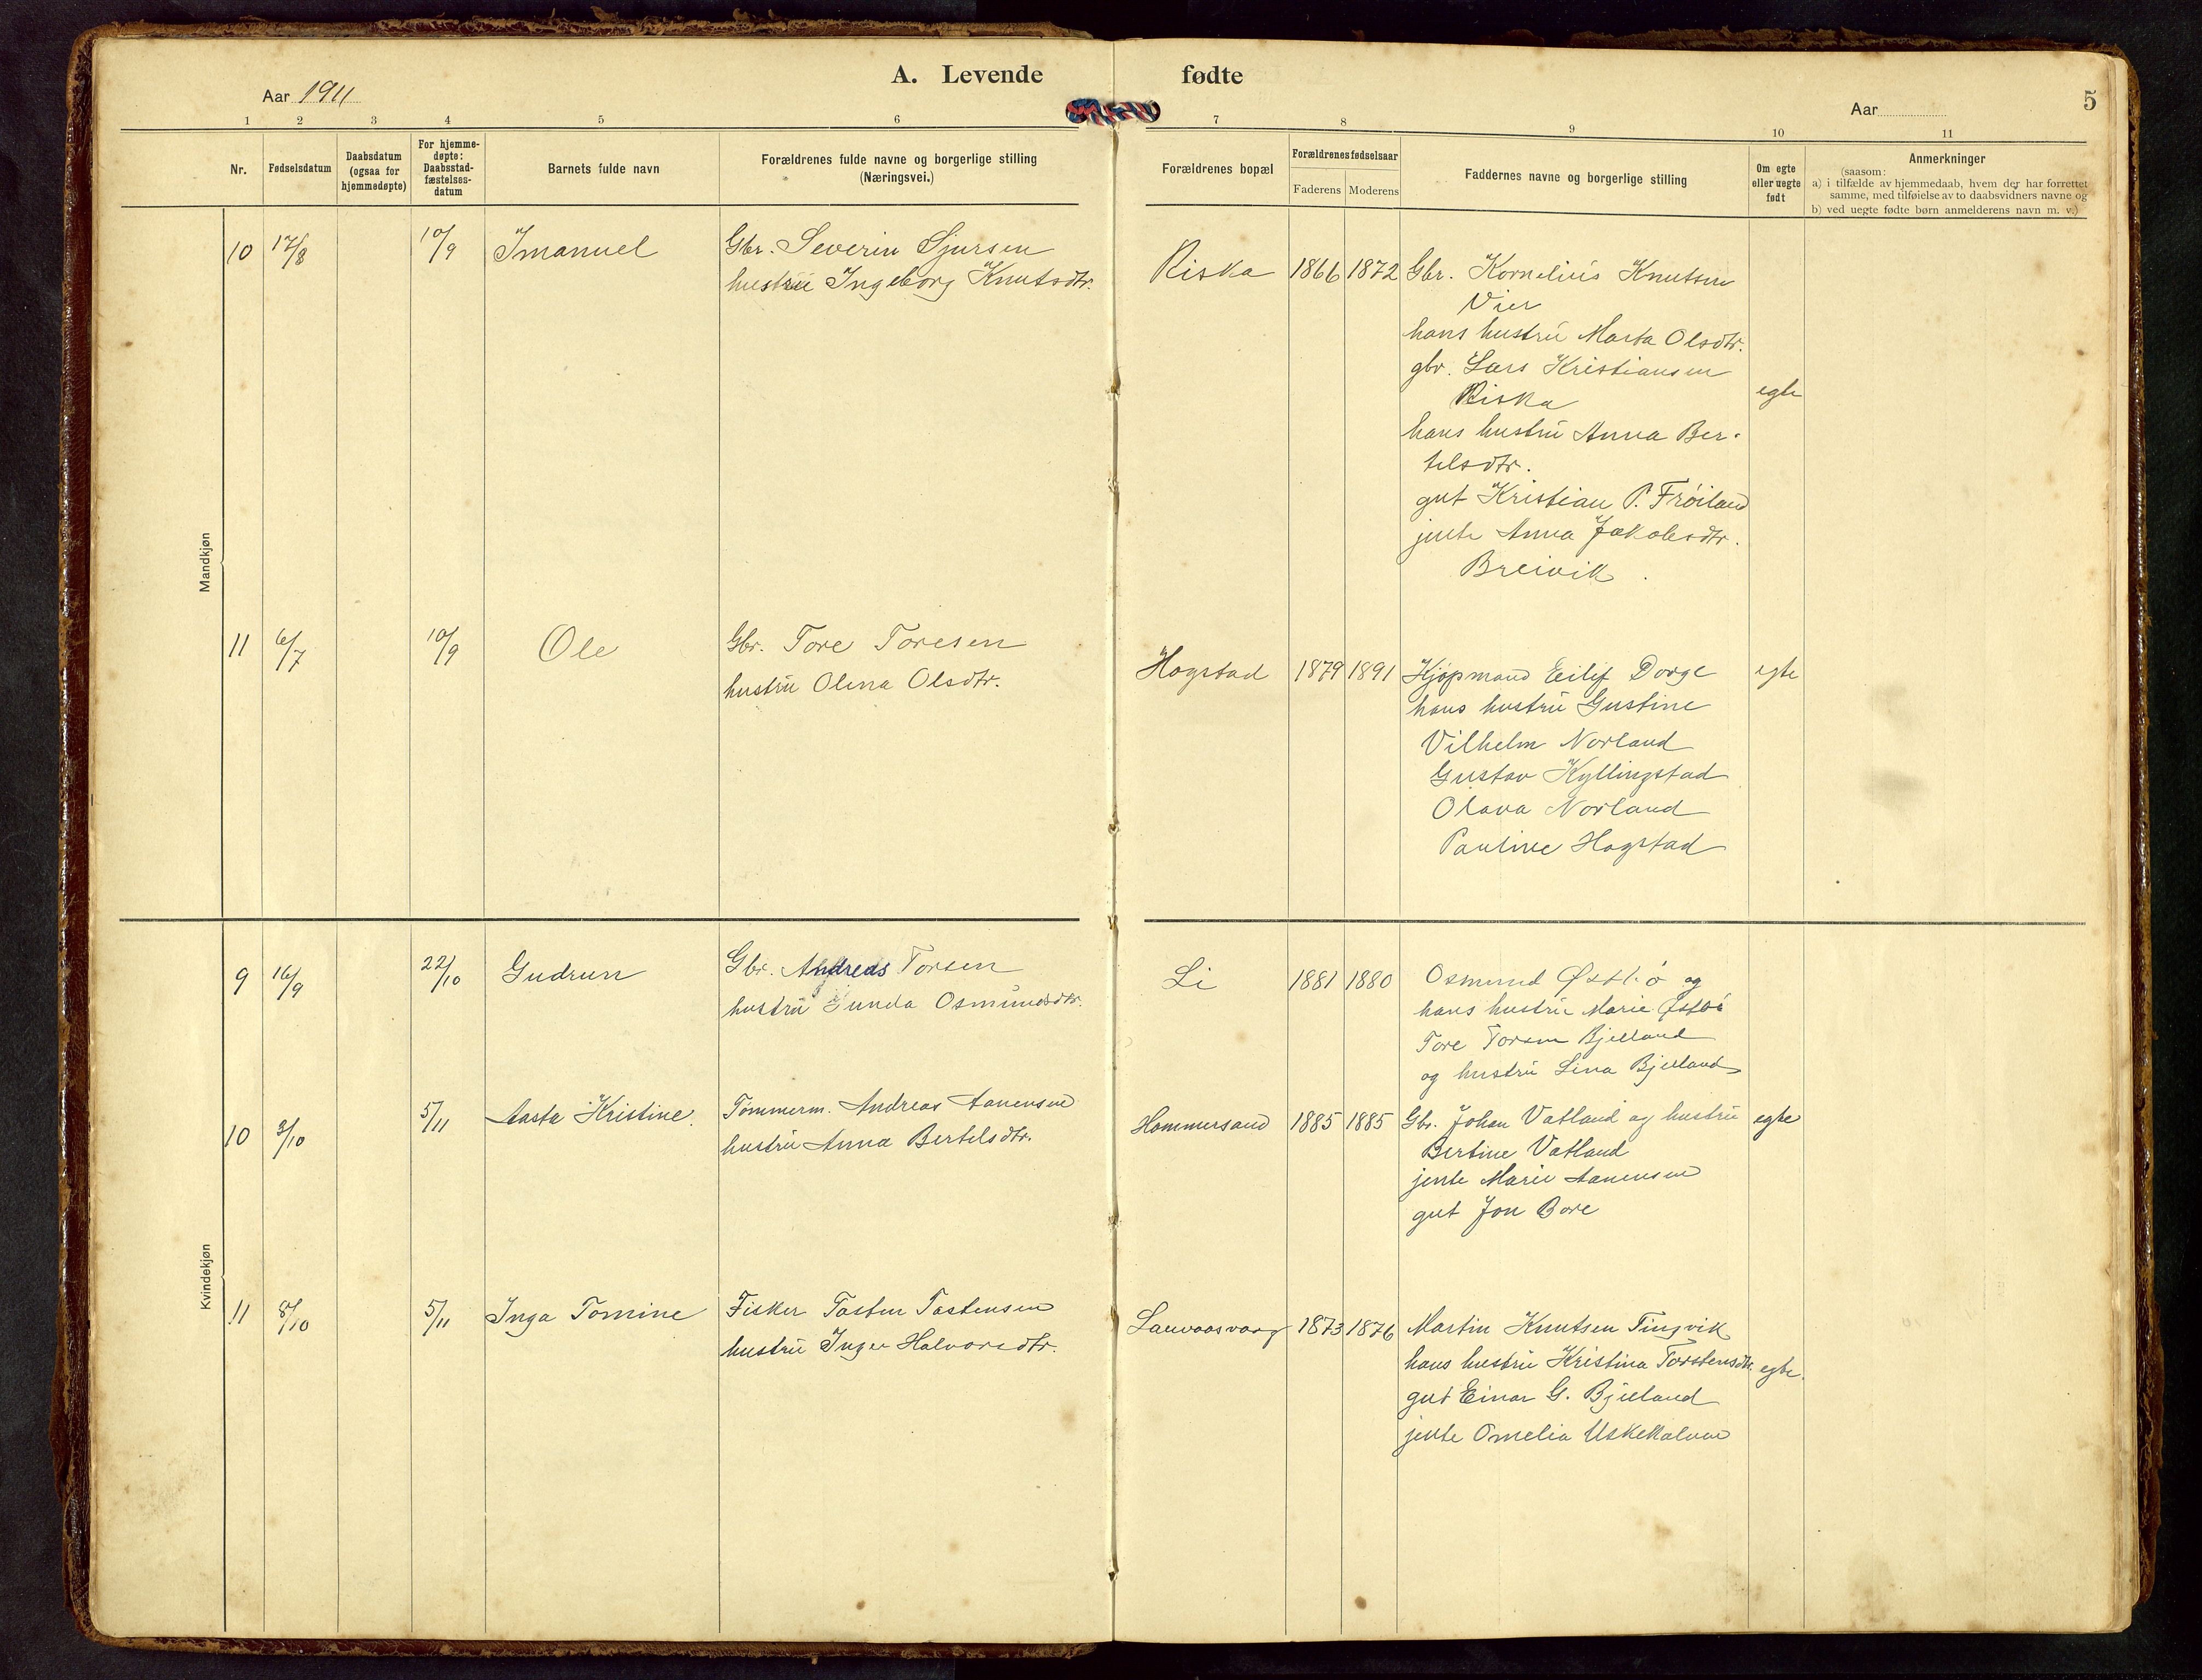 A. Levende fødte
Aar 1911
Aar
5
1 2 3 4 5 6 7 8 9 10 11
Nr.
Fødselsdatum
Daabsdatum
(ogsaa for
hjemmedøpte)
For hjemme-
døpte:
Daabsstad-
fæstelses-
datum
Barnets fulde navn
Forældrenes fulde navne og borgerlige stilling
(Næringsvei.)
Forældrenes bopæl
Forældrenes fødselsaar
Faderens Moderens
Faddernes navne og borgerlige stilling
Om egte
eller uegte
født
Anmerkninger
(saasom:
a) i tilfælde av hjemmedaab, hvem der har forrettet
samme, med tilføielse av to daabsvidners navne og
b) ved uegte fødte børn anmelderens navn m. v.)
Mandkjøn
10 17/8 10/9 Imanuel
Gbr. Severin Sjursen
hustru Ingeborg Knutsdtr.
Riska 1866 1872
Gbr. Kornelius Knutsen
Vier
hans hustru Marta Olsdtr.
gbr. Lars Kristiansen
Riska
hans hustru Anna Ber-
telsdtr.
gut Kristian P. Frøiland
jente Anna Jakobsdtr.
Breivik.
egte
11 6/7 10/9 Ole
Gbr. Tore Toresen
hustru Olena Olsdtr.
Hogstad 1879 1891
Kjøpmand Eilif Dorge
hans hustru Gustine
Vilhelm Norland
Gustav Kyllingstad
Olava Norland
Pauline Hogstad
egte
Kvindekjøn
9 16/9 22/10 Gudrun
Gbr. Andreas Torsen
hustru Gunda Osmundsdtr.
Li 1881 1880
Osmund Østbø og
hans hustru Marie Østbø
Tore Torsen Bjelland
og hustru Lina Bjelland
10 3/10 5/11 Aasta Kristine.
Tømmerm. Andreas Aanensen
hustru Anna Bertelsdtr.
Hommersand 1885 1885
Gbr. Johan Vatland og hustru
Bertine Vatland
jente Marie Aanensen
gut Jon Bore
egte
11 8/10 5/11 Inga Tomine
Fisker Tosten Tostensen
hustru Inger Halvorsdtr.
1873 1876
Martin Knutsen Tingvik
hans hustru Kristina Torstensdtr.
gut Einar G. Bjelland
jente Omelia Uskekalven
egte.